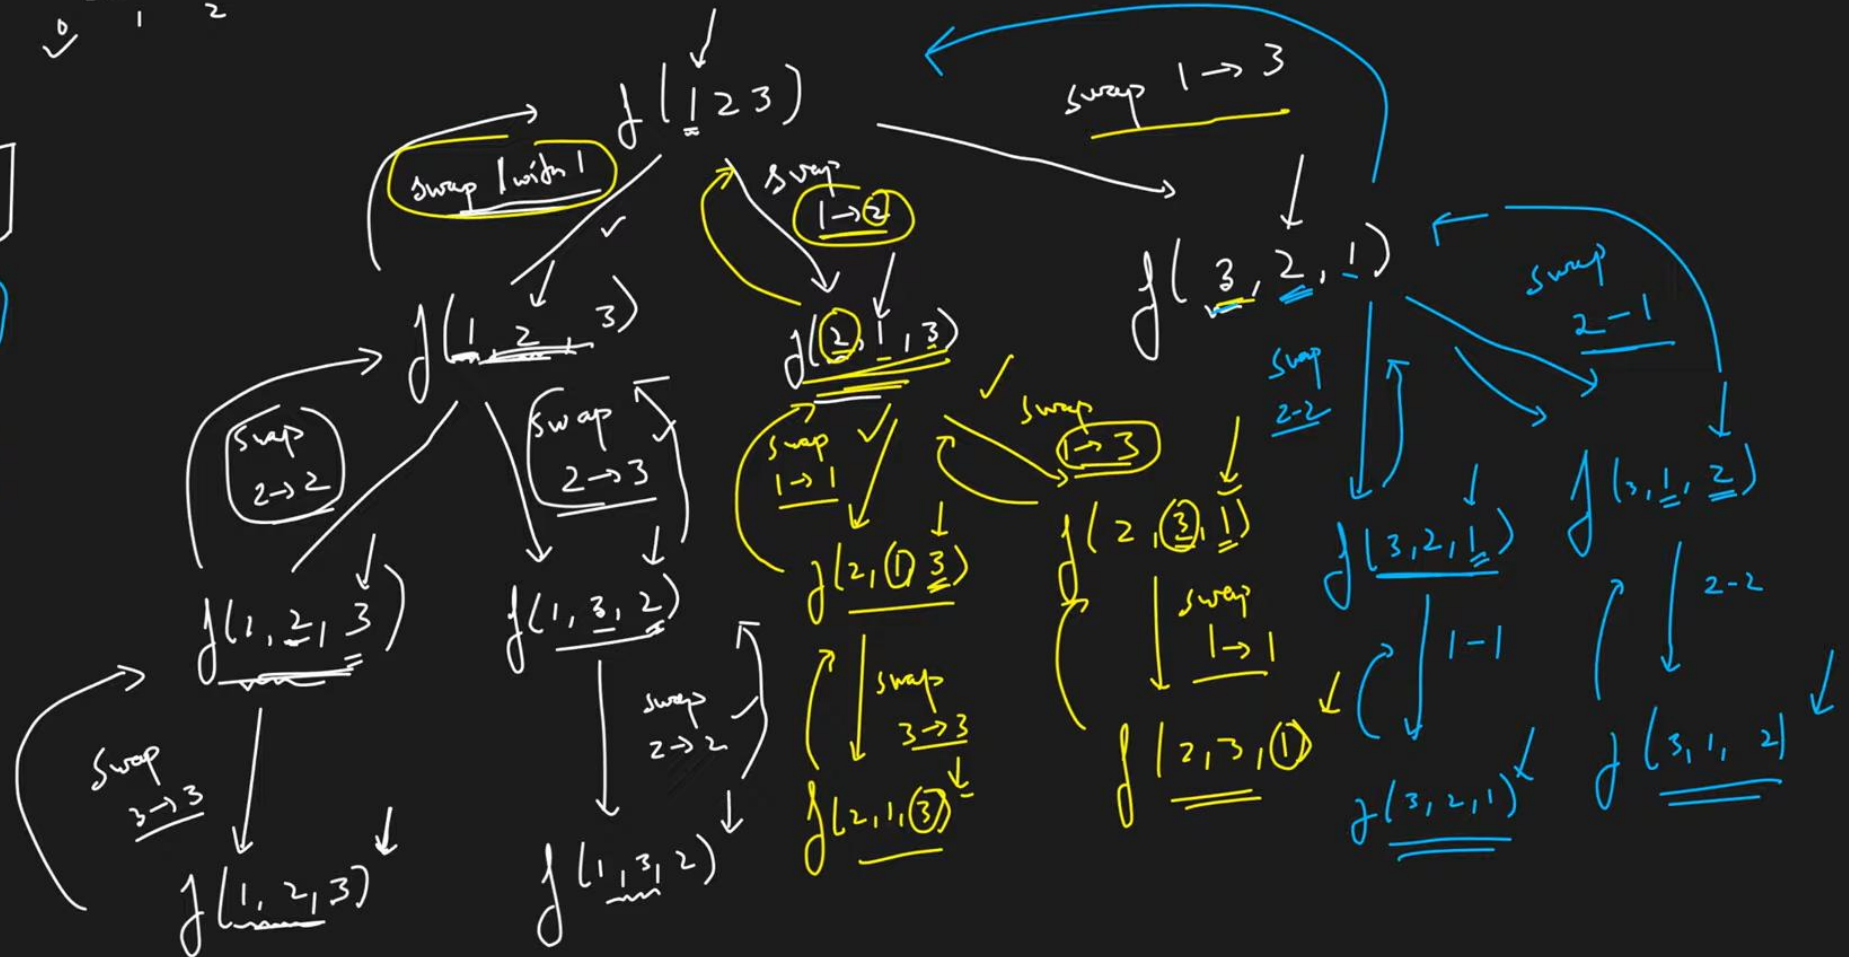 0 1 2
f(1 2 3)
swap 1 → 3
swap 1 with 1
swap
1 → 2
f(1, 2, 3)
f(2, 1, 3)
f(3, 2, 1)
swap
2 - 1
swap
2 → 2
swap
2 → 3
swap
1 → 1
swap
1 → 3
swap
2-2
f(1, 2, 3)
f(1, 3, 2)
f(2, 1 3)
f(2, 3, 1)
f(3, 2, 1)
f(3, 1, 2)
swap
3 → 3
swap
2 → 2
swap
3 → 3
swap
1 → 1
1 - 1
2 - 2
f(1, 2, 3)
f(1, 3, 2)
f(2, 1, 3)
f(2, 3, 1)
f(3, 2, 1)
f(3, 1, 2)